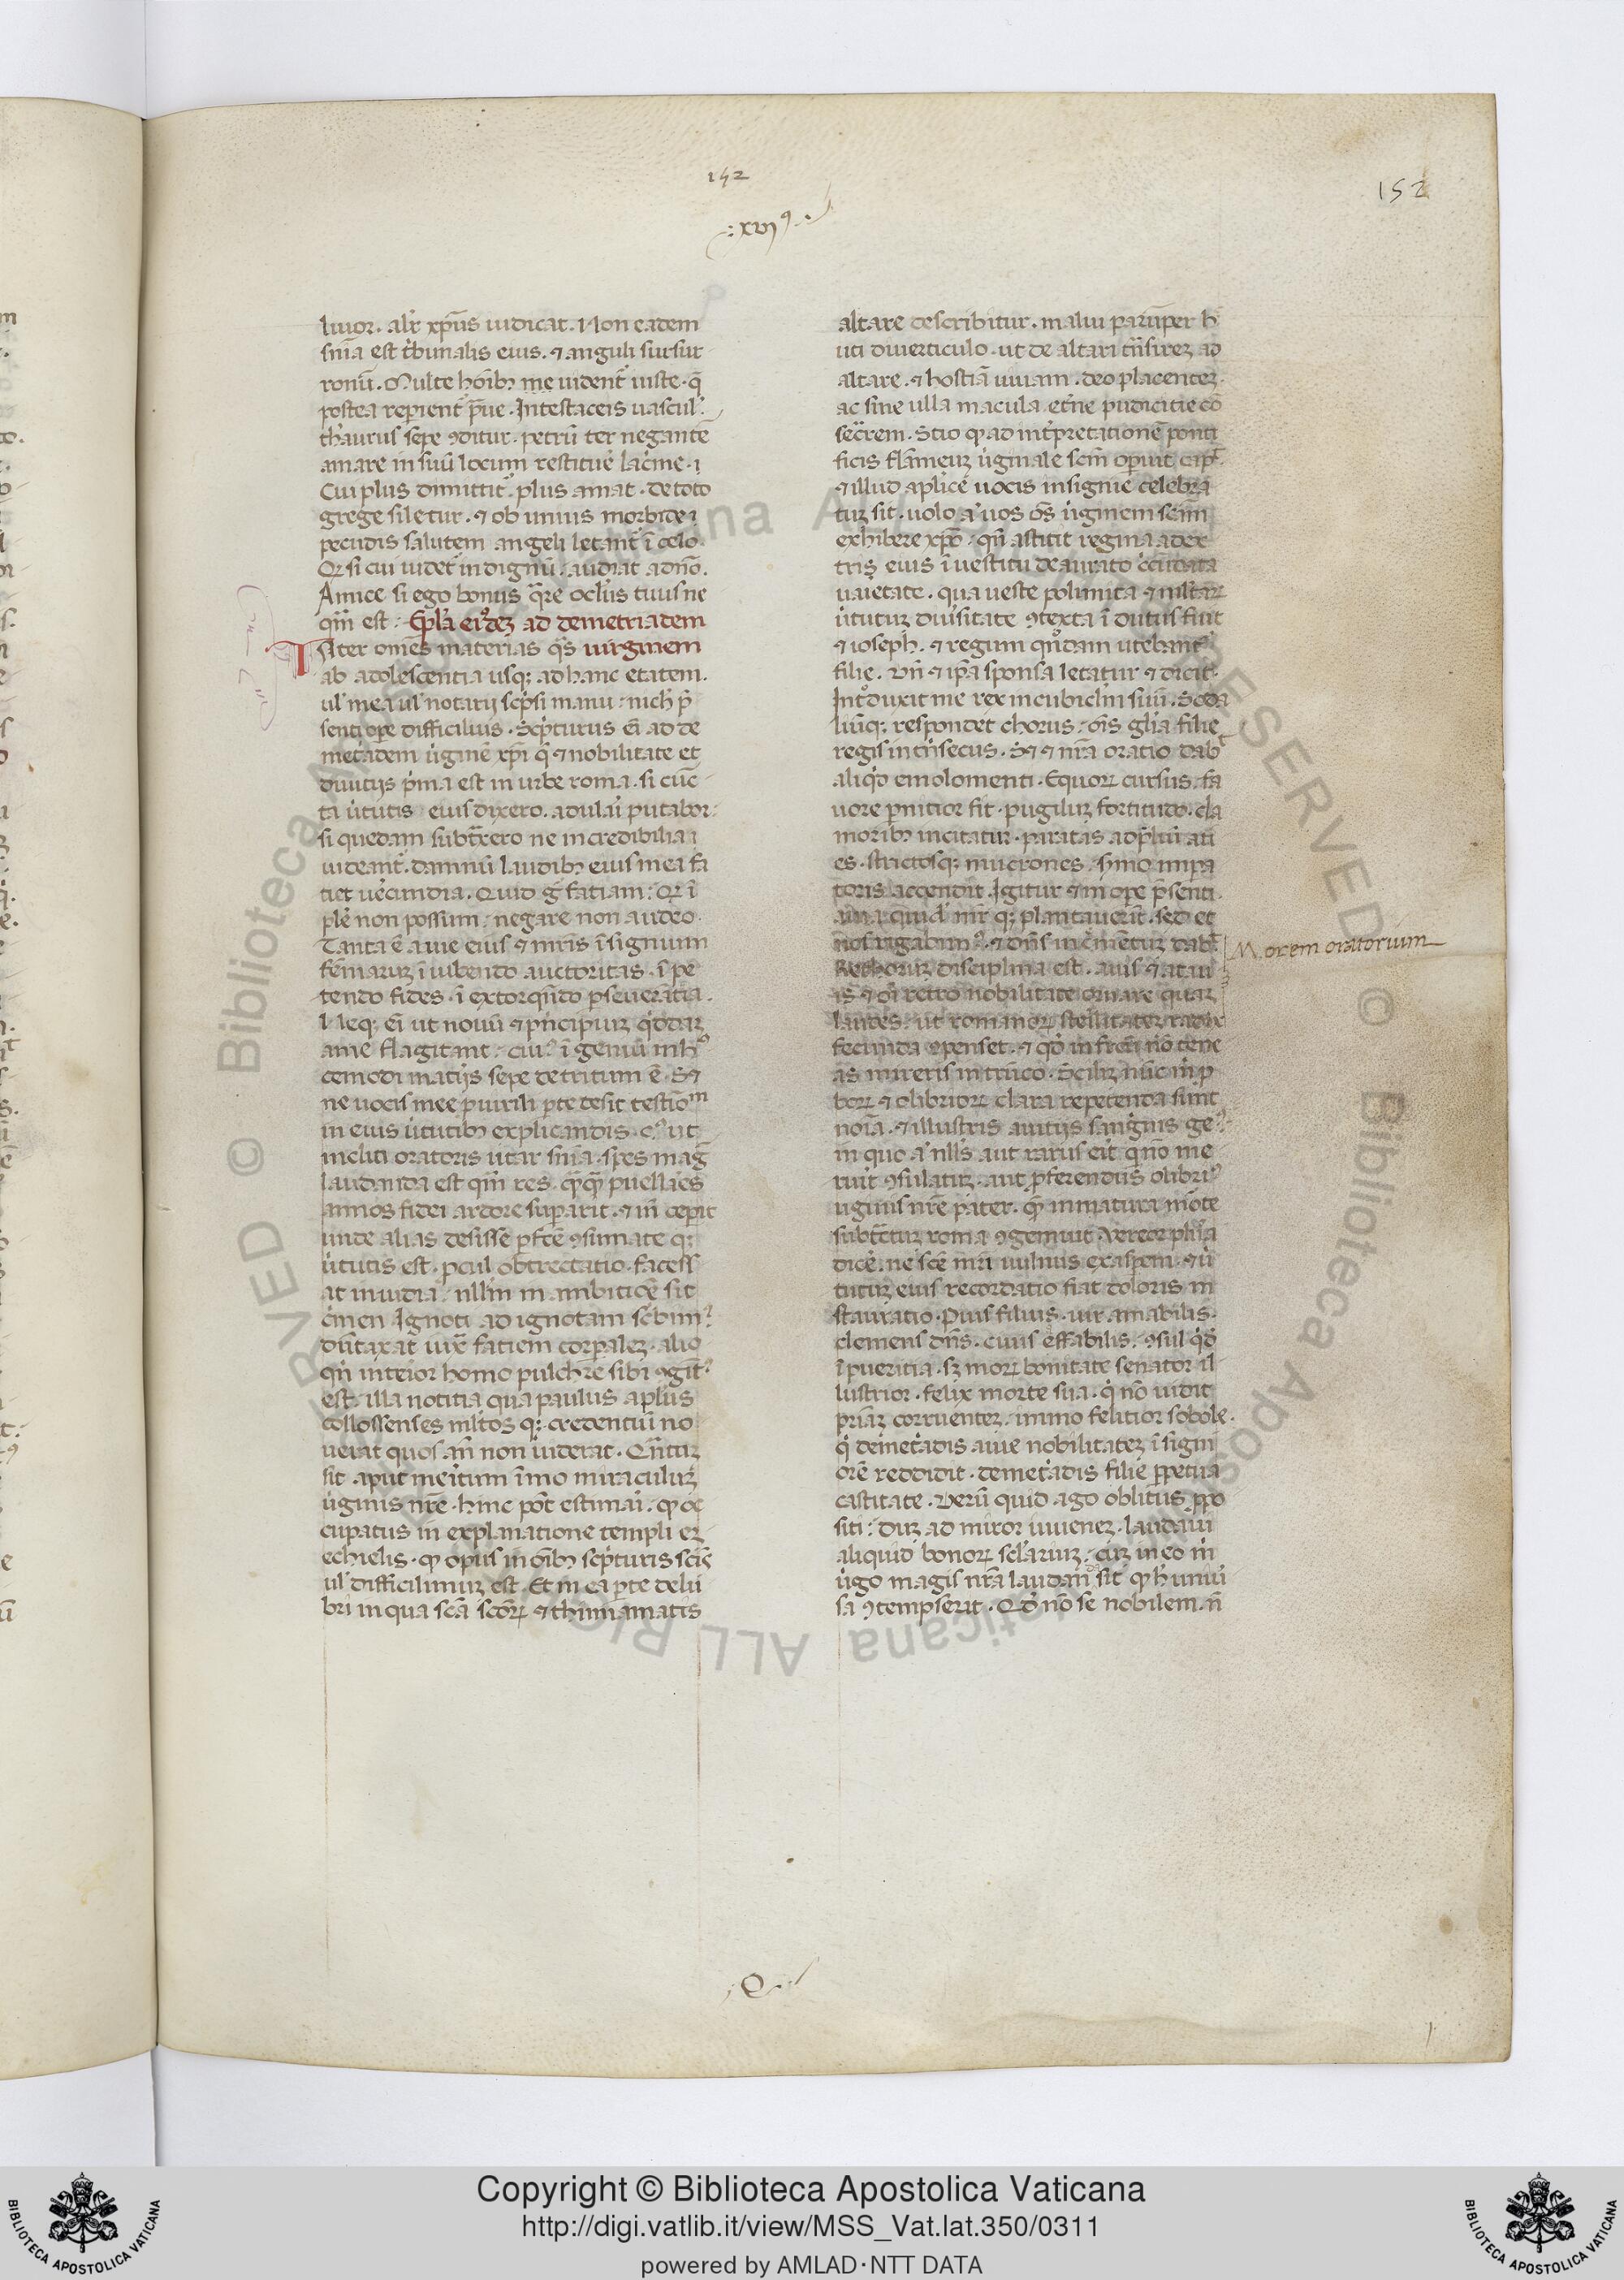 152
152
:xvijꝰ.
liuor. alr̃ xp̃us iudicat. Non eadem
sn̄ia est t͛bunalis eius. ⁊ anguli susur
ronū. Multe hōibꝫ me uident᷑ iuste. q̄
postea repient᷑ p̄ue. In testaceis uascul᷑.
th̓aurus sepe ꝯditur. petrū ter negantē
amare in suū locum restituē lac͛me.
Cui plus dimittit᷑. plus amat. de toto
grege siletur. ⁊ ob unius morbide
pecudis salutem angeli letant᷑ ī celo.
Qꝫ si cui uidet᷑ indignū. audiat a dn̄o.
Amice si ego bonus q̄re oclūs tuus ne
qm̄ est. Ep̄la eiꝰdeꝫ ad demetriadem
INter omēs materias q̄s uirginem
ab adolescentia usqꝫ ad hanc etatem.
ul᷑ mea ul᷑ notarij sc͛psi manu. nich̓ p̄
senti ope difficilius. Sc͛pturus .n. ad de
met͛adem u͛ginē xp̄i q̄ ⁊ nobilitate et
diuitijs p͛ma est in urbe roma. si cūc
ta u͛tutis eius dixero. adulari putabor.
si quedam subt̄xero ne incredibilia
uideant᷑. damnū laudibꝫ eius mea fa
ciet uec̄undia. Quid g̊ faciam. Qꝫ ī
plē non possum. negare non audeo.
Tanta ē auie eius ⁊ mr̄is īsignium
fēminaruꝫ ī iubendo auctoritas. ī pe
tendo fides. ī extorqn̄do pseuerātia.
cemodi mat͛ijs sepe detritum ē. Sꝫ
ne uocis mee p uirili pte desit testiōm
in eius u͛tutibꝫ explicandis. cꝰ ut
incliti oratoris utar sn̄ia. spes mag̃
laudanda est qm̄ res. q̄q̄ puellaēs
annos fidei ardore suparit. ⁊ in͛ cepit
unde alias desisse pfctē ꝯsumate qꝫ
u͛tutis est. pcul obtrectatio. facess
at inuidia. nllm̄ in ambitiōe sit
c͛men. Ignoti ad ignotam sc͛bimꝰ.
dūtaxat iux̄ faciem corpaleꝫ. alio
qn̄ interior homo pulchre sibi ꝯgitꝰ.
est. illa notitia qua paulus aplūs
collossenses ml̓tos qꝫ credentiū no
uerat quos an̄ non uiderat. Qn̄tuꝫ
sit aput me͛itum īmo miraculuꝫ
u͛ginis nr̄e. hinc pōt estimari. ꝙ oc
cupatus in explanatione templi eꝫ
echielis. ꝙ opus in oībꝫ sc͛pturis sc̄is
ul᷑ difficilimuꝫ est. Et in ea pte delu
bri in qua sc̄a sc̄oꝝ ⁊ thimiamatis
altare describitur. malui parūper h̓
uti diuerticulo. ut de altari tn̄sireꝫ ad
altare. ⁊ hostiā uiuam. deo placenteꝫ.
ac sine ulla macula. et͛ne pudicitie cō
sec̄rem. Scio ꝙ ad int͛pretationē ponti
ficis flāmeuꝫ u͛ginale scm̄ opuit. cap᷑t
⁊ illud ap̄licē uocis insigne celebra
tuꝫ sit. uolo a᷑ uos om̄s u͛ginem scām
exhibere xpō. qn̄ astitit regina a dex
tris eius ī uestitu deaurato c͛cūdata
uarietate. qua ueste polimita ⁊ ml̓taꝝ
u͛tutuꝫ diu͛sitate ꝯtexta ī dutus fuit
⁊ ioseph. ⁊ regum qn̊dam utebantꝰ
filie. Vn̄ ⁊ ip̄a sponsa letatur ⁊ dicit.
Int͛duxit me rex in cubiclm̄ suū. Soda
liūqꝫ respondet chorus. om̄s gl̄ia filie
regis int͛nsecus. Sꝫ ⁊ nr̄a oratio dab᷑t
aliqd᷑ emolomenti. Equoꝝ cursus fa
uore pnitior fit. pugiluꝫ fortitudo. cla
moribꝫ incitatur. paratas ad p̄liū aci
es. strictosqꝫ mucrones. smo impa
toris accendit. Igitur ⁊ in ope p̄senti.
nos rigabimꝰ. ⁊ dn̄s inc͛mētuꝫ dab᷑t.
Rethoruꝫ disciplina est. auis ⁊ ataui
is ⁊ oī retro nobilitate ornare quaꝫ
laudes. ut
fecunda ꝯpenset. ⁊ qd᷑ in frctū nō tene
as mireris in trūco. Scilꝫ nūc m͛ p
boꝝ ⁊ olibrioꝝ clara repetenda sunt
noīa. ⁊ illustris auitijs sang͛nis gēꝰ
in quo a᷑ nlls̄ aut rarus eit q nō me
ruit ꝯsulatuꝫ. aut pferendus olibriꝰ
u͛ginis nr̄e pater. quē inmatura mōte
subt̄ctuꝫ roma ꝯgemuit.
dicē. ne scē mr̄i uulnus exaspem. ⁊ u͛
tutuꝫ eius recordatio fiat doloris in
stauratio. Pius filius. uir amabilis.
clemens dn̄s. ciuis effabilis. ꝯsul qd᷑
ī pueritia. sꝫ moꝝ bonitate senator il
lustrior. felix morte sua. q͛ nō uidit
pr͛iaꝫ corruenteꝫ. immo felitior sobole.
q͛ demet͛adis auie nobilitateꝫ īsigni
orē reddidit. demet͛adis filie ppetua
castitate. Verū quid ago oblitus ppo
siti. Duꝫ ad miror iuueneꝫ. laudaui
aliquid bonoꝝ sclāriuꝫ. cuꝫ in eo m͛
u͛go magis nr̄a laudan̄ sit ꝙ h̓ uniu͛
sa ꝯtempserit. Qd᷑ nō se nobilem. n̄
Morem oratorium
e
Copyright © Biblioteca Apostolica Vaticana
http://digi.vatlib.it/view/MSS_Vat.lat.350/0311
powered by AMLAD·NTT DATA
BIBLIOTECA APOSTOLICA VATICANA
BIBLIOTECA APOSTOLICA VATICANA